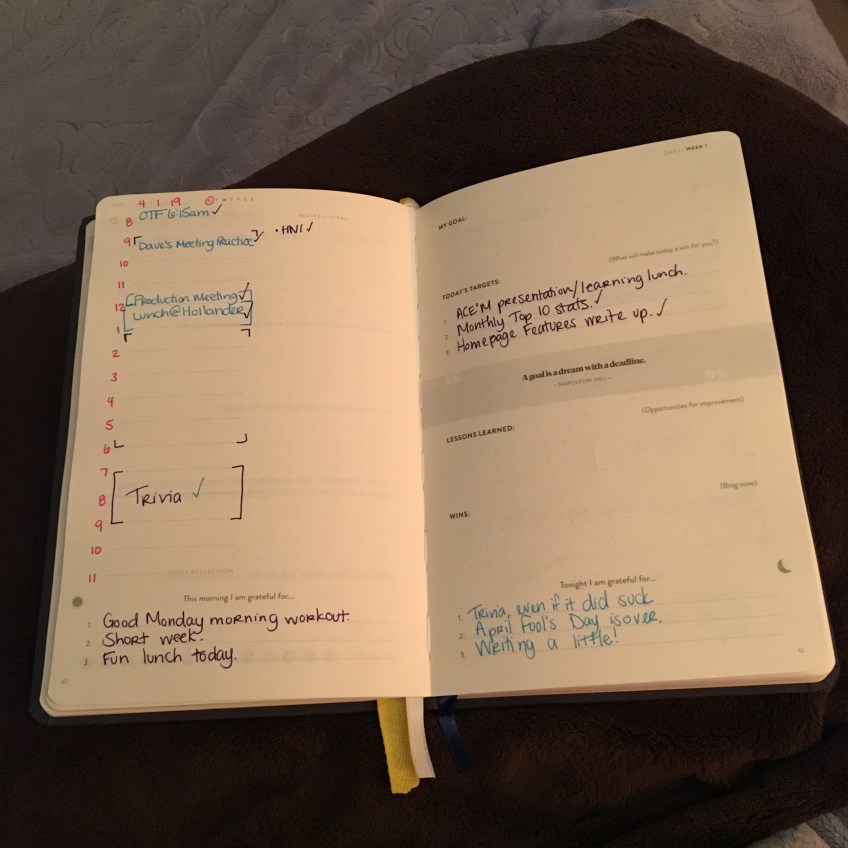 4 · 1 · 19 M T W T F S S
NOTES + IDEAS
8 OTF 6:15am ✓
9 Dave's Meeting Practice ✓ • HNI ✓
10
11
Production Meeting ✓
12 Lunch@Hollander ✓
1
2
3
4
5
6
7
8 Trivia ✓
9
10
11
DAILY REFLECTION
This morning I am grateful for...
1. Good Monday morning workout.
2. Short week.
3. Fun lunch today.
WEEK 1
MY GOAL:
(What will make today a win for you?)
TODAY'S TARGETS:
1. ACE'M presentation/learning lunch.
2. Monthly Top 10 stats. ✓
3. Homepage Features write up. ✓
A goal is a dream with a deadline.
– NAPOLEON HILL –
(Opportunities for improvement)
LESSONS LEARNED:
(Brag zone)
WINS:
Tonight I am grateful for...
1. Trivia, even if it did suck
2. April Fool's Day is over.
3. Writing a little!